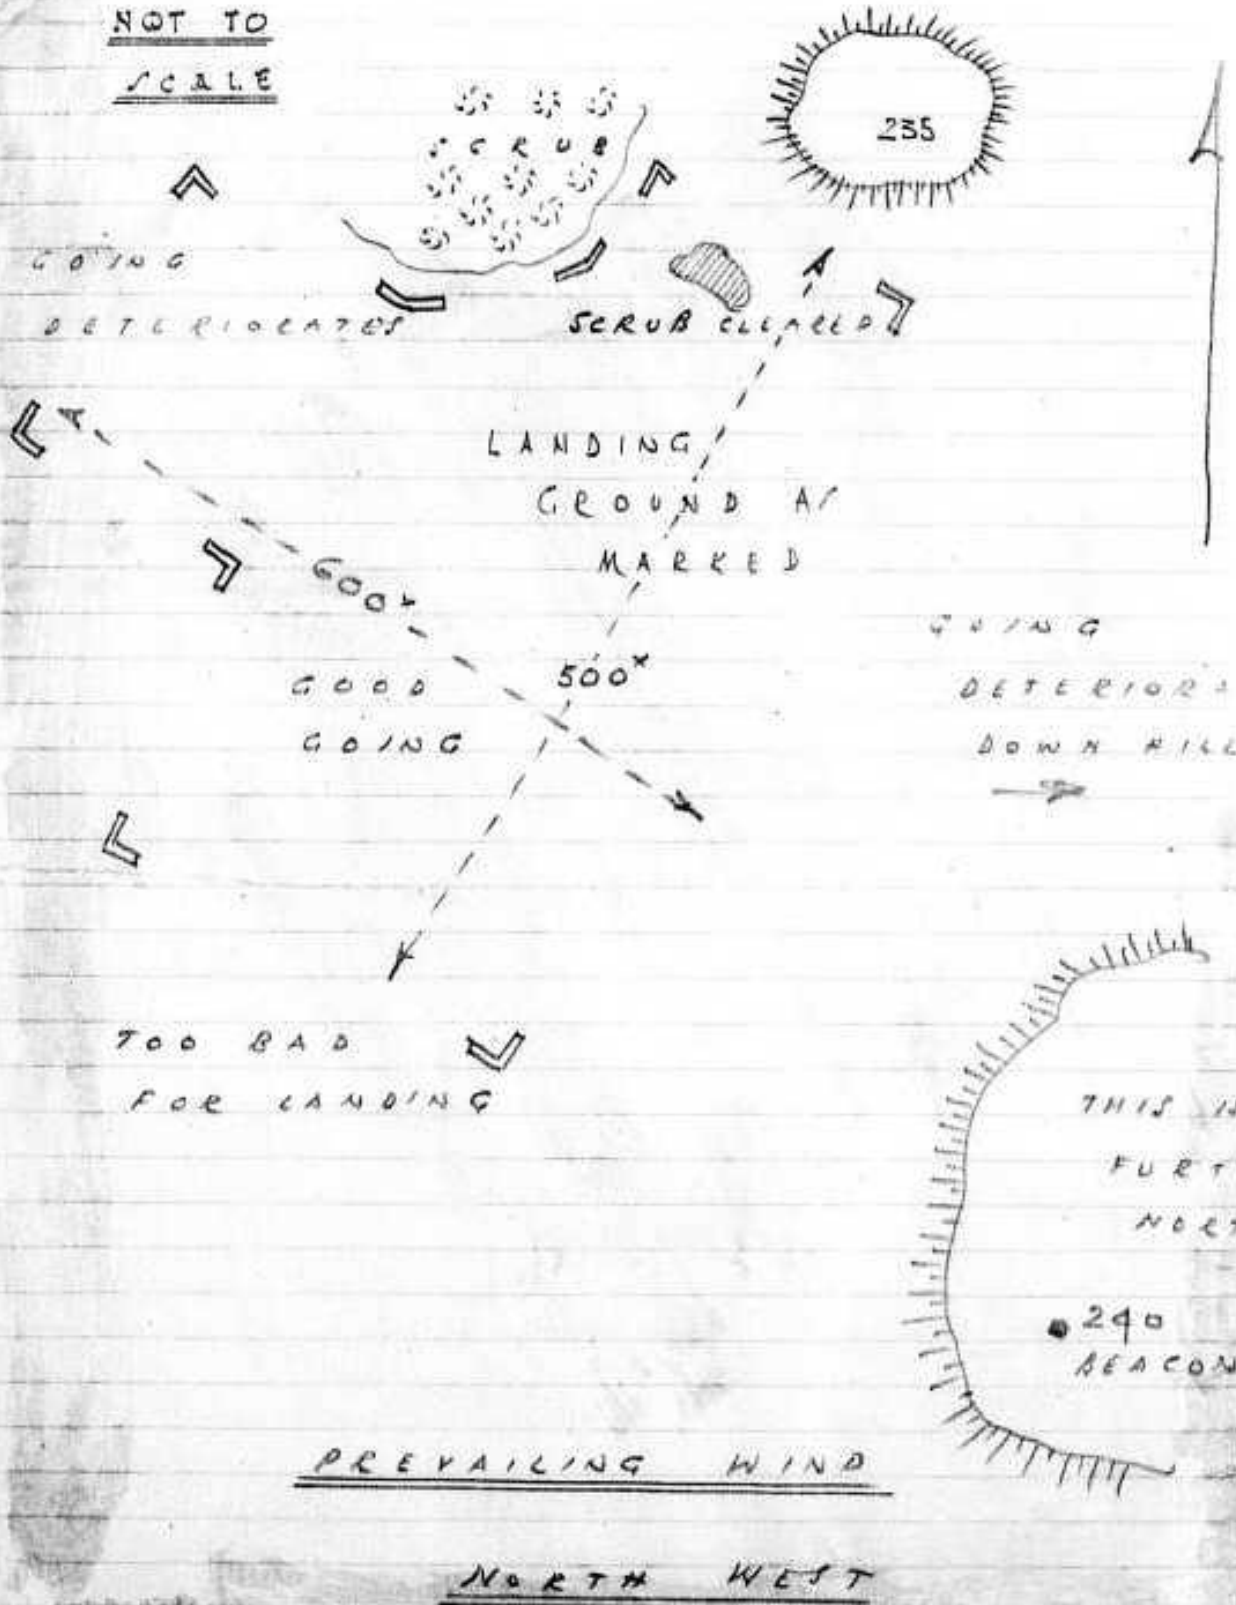 NOT TO
SCALE
SCRUB
235
GOING
DETERIORATES
SCRUB CLEARED
LANDING
GROUND AS
MARKED
600x
GOING
DETERIORA
DOWN HILL
500x
GOOD
GOING
TOO BAD
FOR LANDING
THIS IS
FURT
NORT
240
BEACON
PREVAILING WIND
NORTH WEST